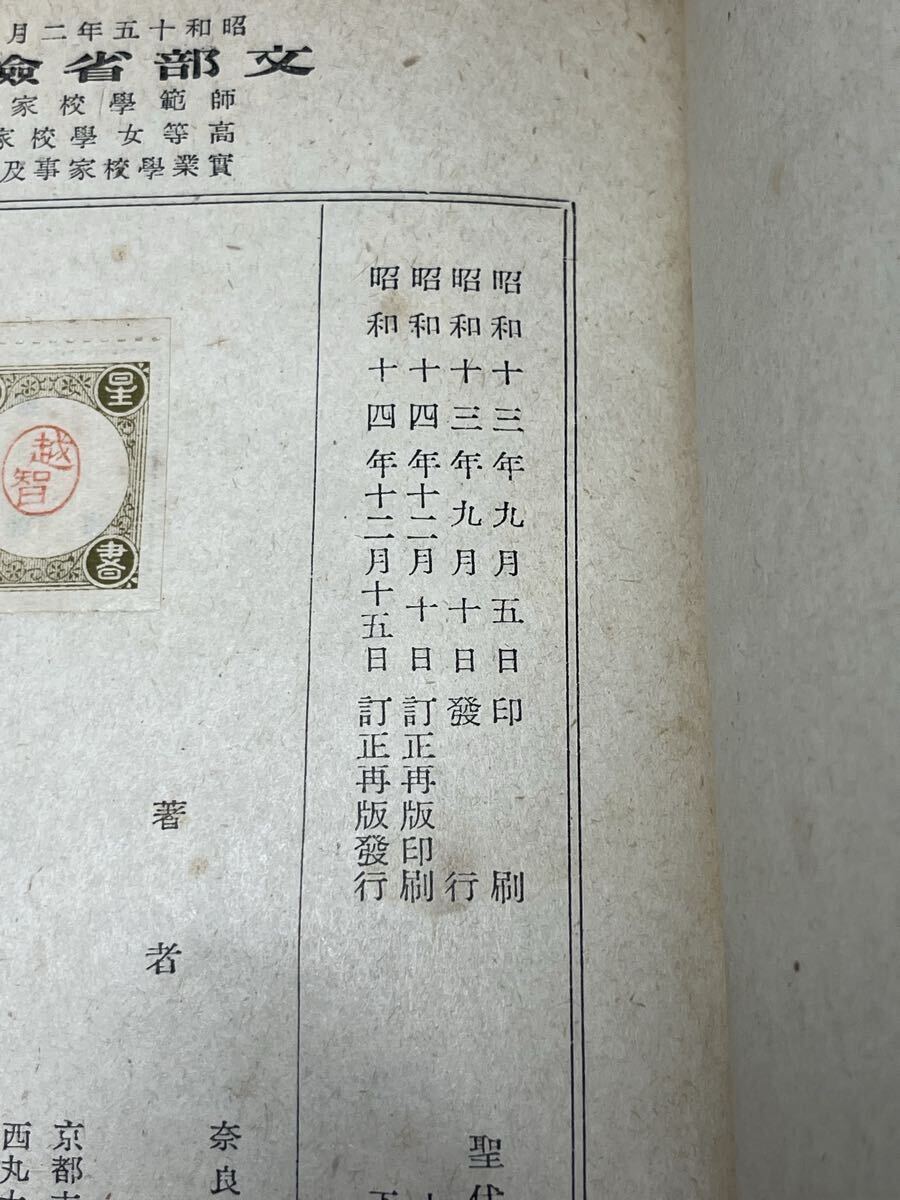 昭和十五年二月
文部省檢
師範學校家
高等女學校家
實業學校家事及
昭和十三年九月五日印刷
昭和十三年九月十日發行
昭和十四年十二月十日訂正再版印刷
昭和十四年十二月十五日訂正再版發行
呈
越智
書
著者
聖代
奈良
京都市
西丸